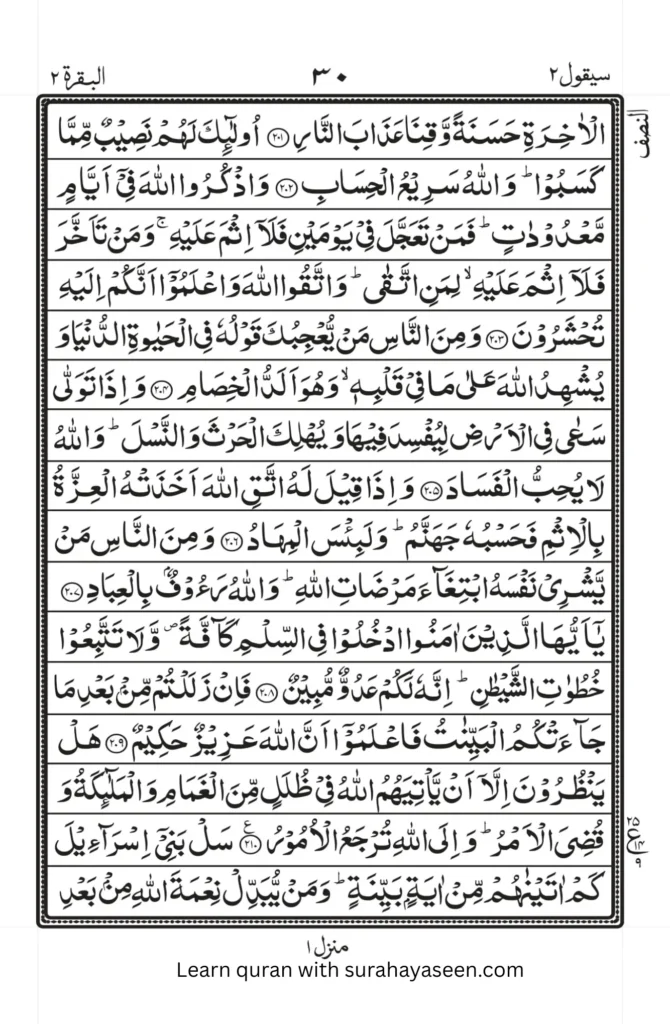 سيقول ٢
٣٠
البقرة ٢
النصف
الْاٰخِرَةِ حَسَنَةً وَّقِنَا عَذَابَ النَّارِ ﴿٢٠١﴾ اُولٰٓئِكَ لَهُمْ نَصِيْبٌ مِّمَّا
كَسَبُوْا ؕ وَاللّٰهُ سَرِيْعُ الْحِسَابِ ﴿٢٠٢﴾ وَاذْكُرُوا اللّٰهَ فِيْٓ اَيَّامٍ
مَّعْدُوْدٰتٍ ؕ فَمَنْ تَعَجَّلَ فِيْ يَوْمَيْنِ فَلَآ اِثْمَ عَلَيْهِ ۚ وَمَنْ تَاَخَّرَ
فَلَآ اِثْمَ عَلَيْهِ ۙ لِمَنِ اتَّقٰى ؕ وَاتَّقُوا اللّٰهَ وَاعْلَمُوْٓا اَنَّكُمْ اِلَيْهِ
تُحْشَرُوْنَ ﴿٢٠٣﴾ وَمِنَ النَّاسِ مَنْ يُّعْجِبُكَ قَوْلُهٗ فِي الْحَيٰوةِ الدُّنْيَا وَ
يُشْهِدُ اللّٰهَ عَلٰى مَا فِيْ قَلْبِهٖ ۙ وَهُوَ اَلَدُّ الْخِصَامِ ﴿٢٠٤﴾ وَاِذَا تَوَلّٰى
سَعٰى فِي الْاَرْضِ لِيُفْسِدَ فِيْهَا وَيُهْلِكَ الْحَرْثَ وَالنَّسْلَ ؕ وَاللّٰهُ
لَا يُحِبُّ الْفَسَادَ ﴿٢٠٥﴾ وَاِذَا قِيْلَ لَهُ اتَّقِ اللّٰهَ اَخَذَتْهُ الْعِزَّةُ
بِالْاِثْمِ فَحَسْبُهٗ جَهَنَّمُ ؕ وَلَبِئْسَ الْمِهَادُ ﴿٢٠٦﴾ وَمِنَ النَّاسِ مَنْ
يَّشْرِيْ نَفْسَهُ ابْتِغَآءَ مَرْضَاتِ اللّٰهِ ؕ وَاللّٰهُ رَءُوْفٌۢ بِالْعِبَادِ ﴿٢٠٧﴾
يٰٓاَيُّهَا الَّذِيْنَ اٰمَنُوا ادْخُلُوْا فِي السِّلْمِ كَآفَّةً ۪ وَّلَا تَتَّبِعُوْا
خُطُوٰتِ الشَّيْطٰنِ ؕ اِنَّهٗ لَكُمْ عَدُوٌّ مُّبِيْنٌ ﴿٢٠٨﴾ فَاِنْ زَلَلْتُمْ مِّنْۢ بَعْدِ مَا
جَآءَتْكُمُ الْبَيِّنٰتُ فَاعْلَمُوْٓا اَنَّ اللّٰهَ عَزِيْزٌ حَكِيْمٌ ﴿٢٠٩﴾ هَلْ
يَنْظُرُوْنَ اِلَّآ اَنْ يَّاْتِيَهُمُ اللّٰهُ فِيْ ظُلَلٍ مِّنَ الْغَمَامِ وَالْمَلٰٓئِكَةُ وَ
قُضِيَ الْاَمْرُ ؕ وَاِلَى اللّٰهِ تُرْجَعُ الْاُمُوْرُ ﴿٢١٠﴾ ع سَلْ بَنِيْٓ اِسْرَآءِيْلَ
كَمْ اٰتَيْنٰهُمْ مِّنْ اٰيَةٍۭ بَيِّنَةٍ ؕ وَمَنْ يُّبَدِّلْ نِعْمَةَ اللّٰهِ مِنْۢ بَعْدِ
منزل ١
Learn quran with surahayaseen.com